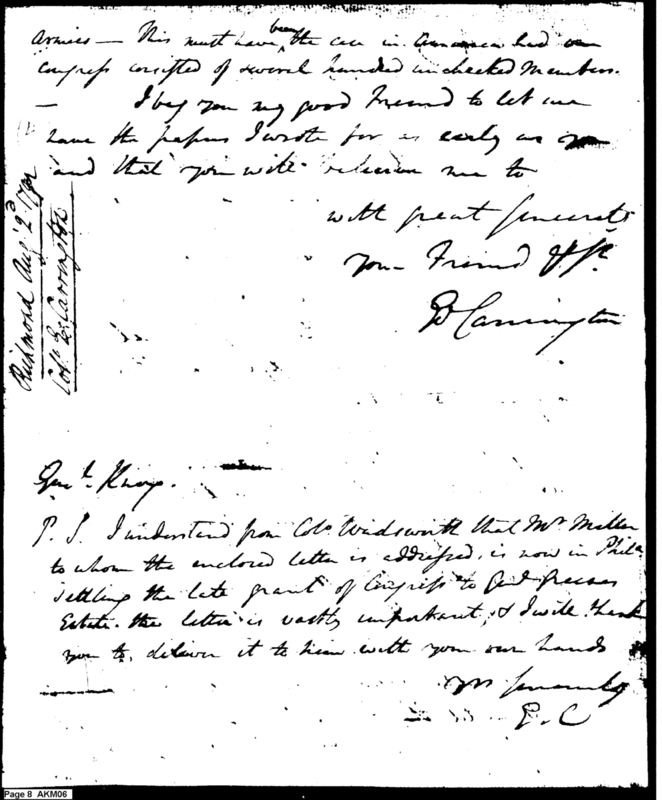 Armies — This must have been the case in America had our
Congress consisted of several hundred unchecked Members.
— I beg you my good Friend to let me
have the papers I wrote for as early as you
and that you will believe me to
with great Sincerity
your Friend & St
Ed Carrington
Richmond Augt 2d
Colo. Ed Carrington
Genl. Knox.
P. S. I understand from Colo Wadsworth that Mr Miller
to whom the enclosed letter is addressed, is now in Phila
settling the late grant of Congress to Genl Greenes
Estate. the letter is vastly important, & I will thank
you to deliver it to him with your own hands
yrs sincerely
E. C
Page 8 AKM06